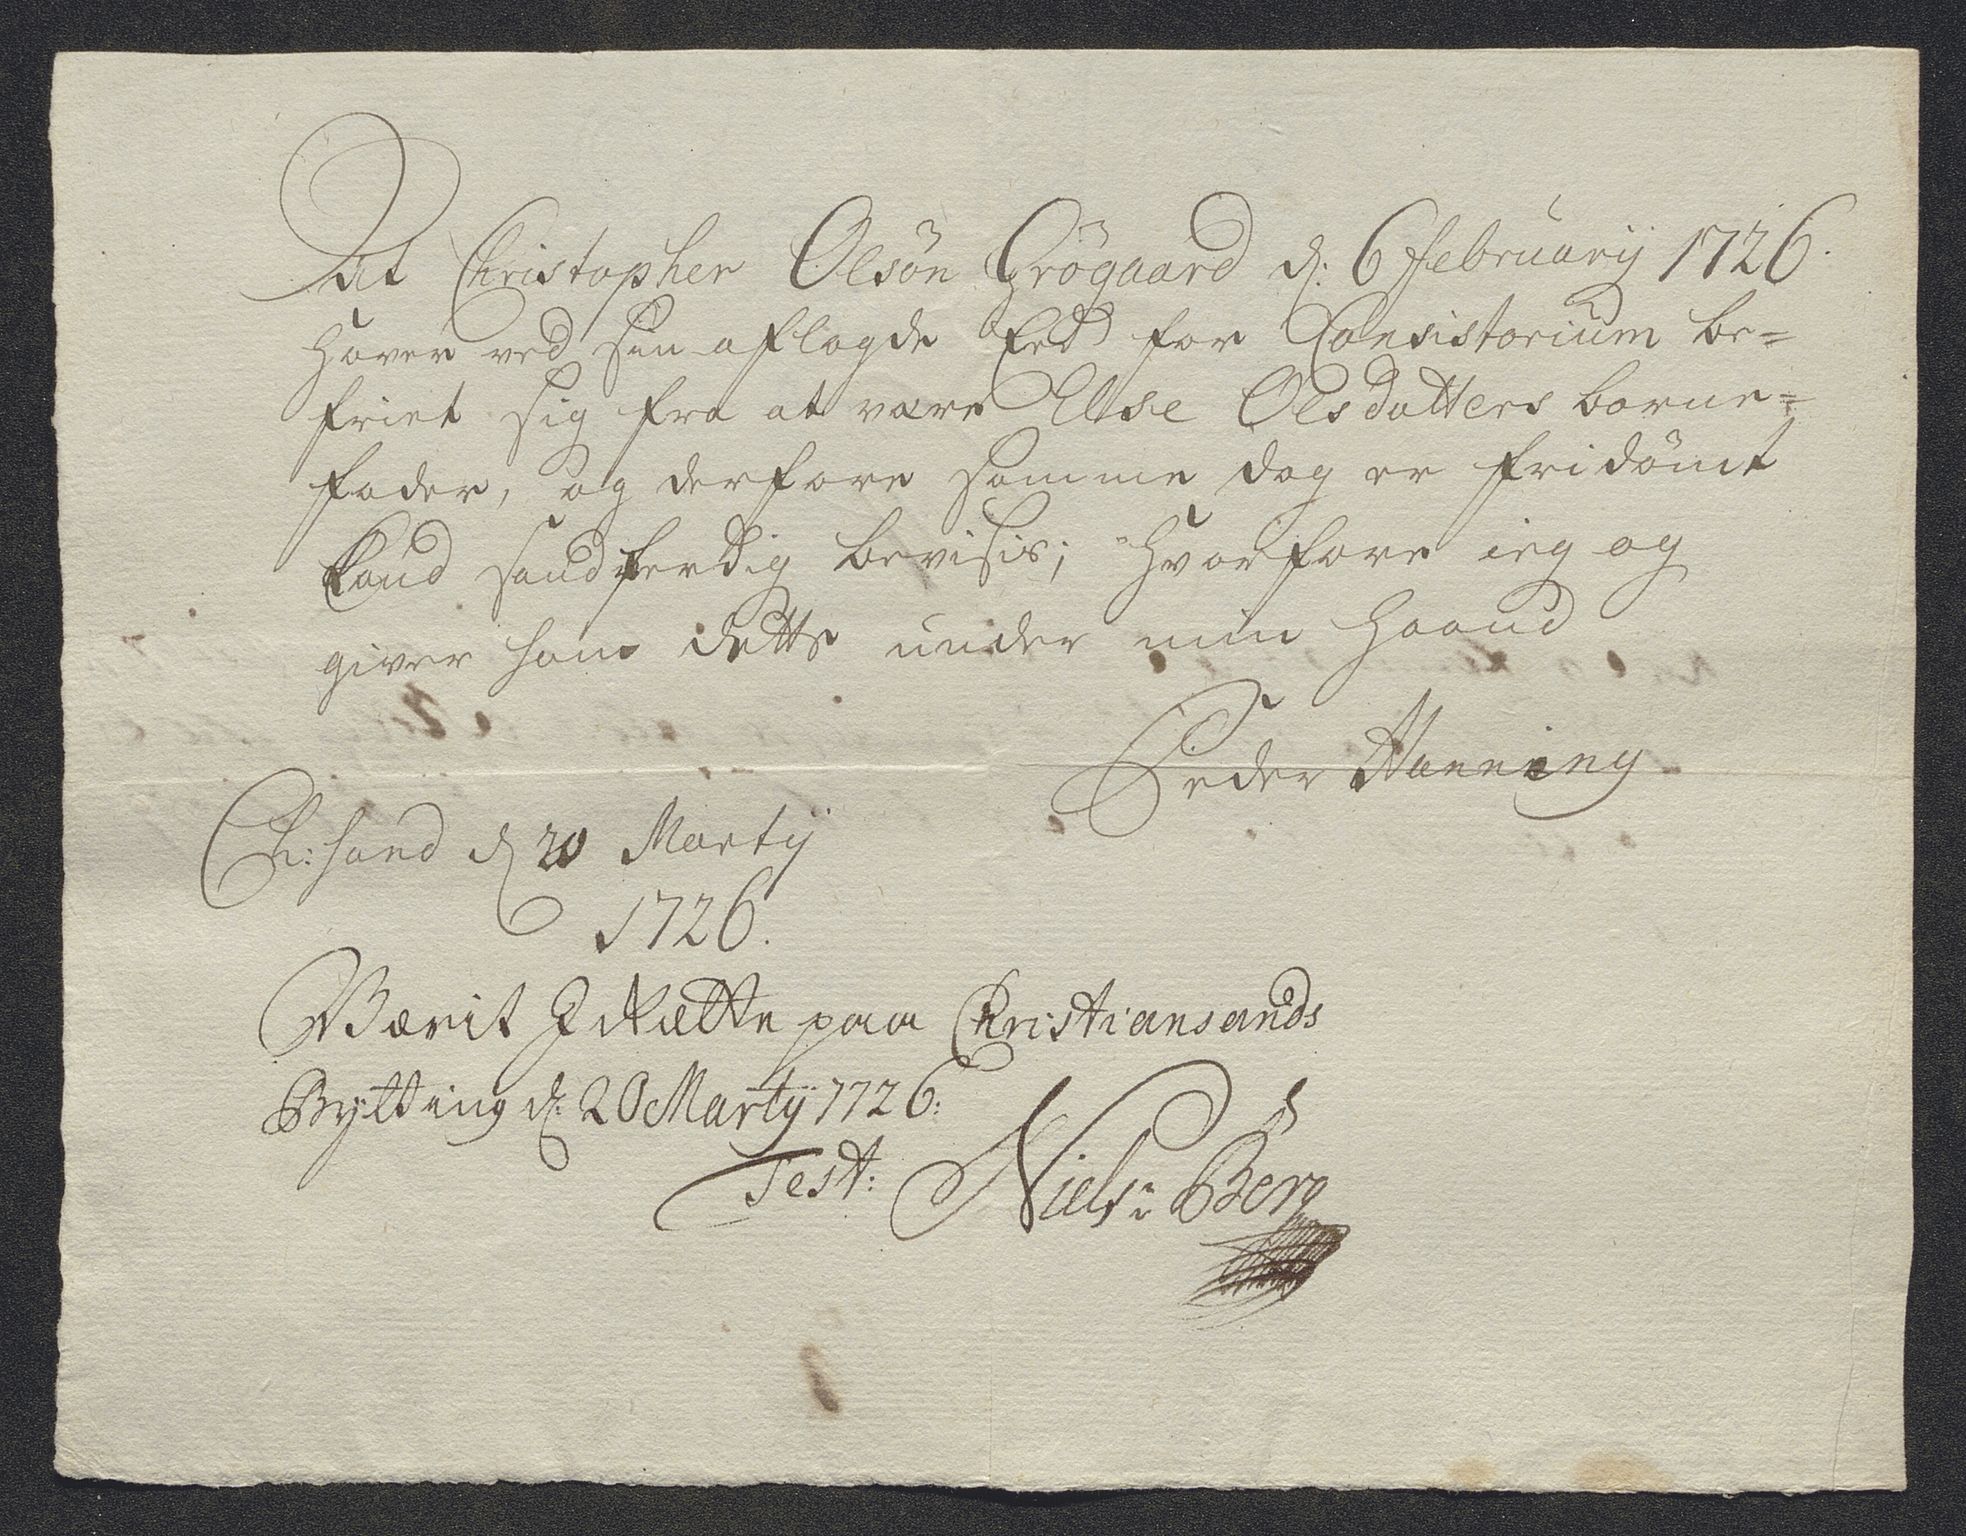 At Christopher Olsön Grögaard d: 6 Februarij 1726.
haver ved sin aflagde Eed for Consistorium be=
friet sig fra at være Else Olsdatters barne=
fader, og derfore samme dag er fri dömt
kand sandferdig bevisis; hvorfore ieg og
giver ham dette under min haand
Peder Hanning
Ch:sand d 20 Martij
1726.
Værit I Rætte paa Christiansands
Bytting d: 20 Martij 1726:
Test: Niels: Berg